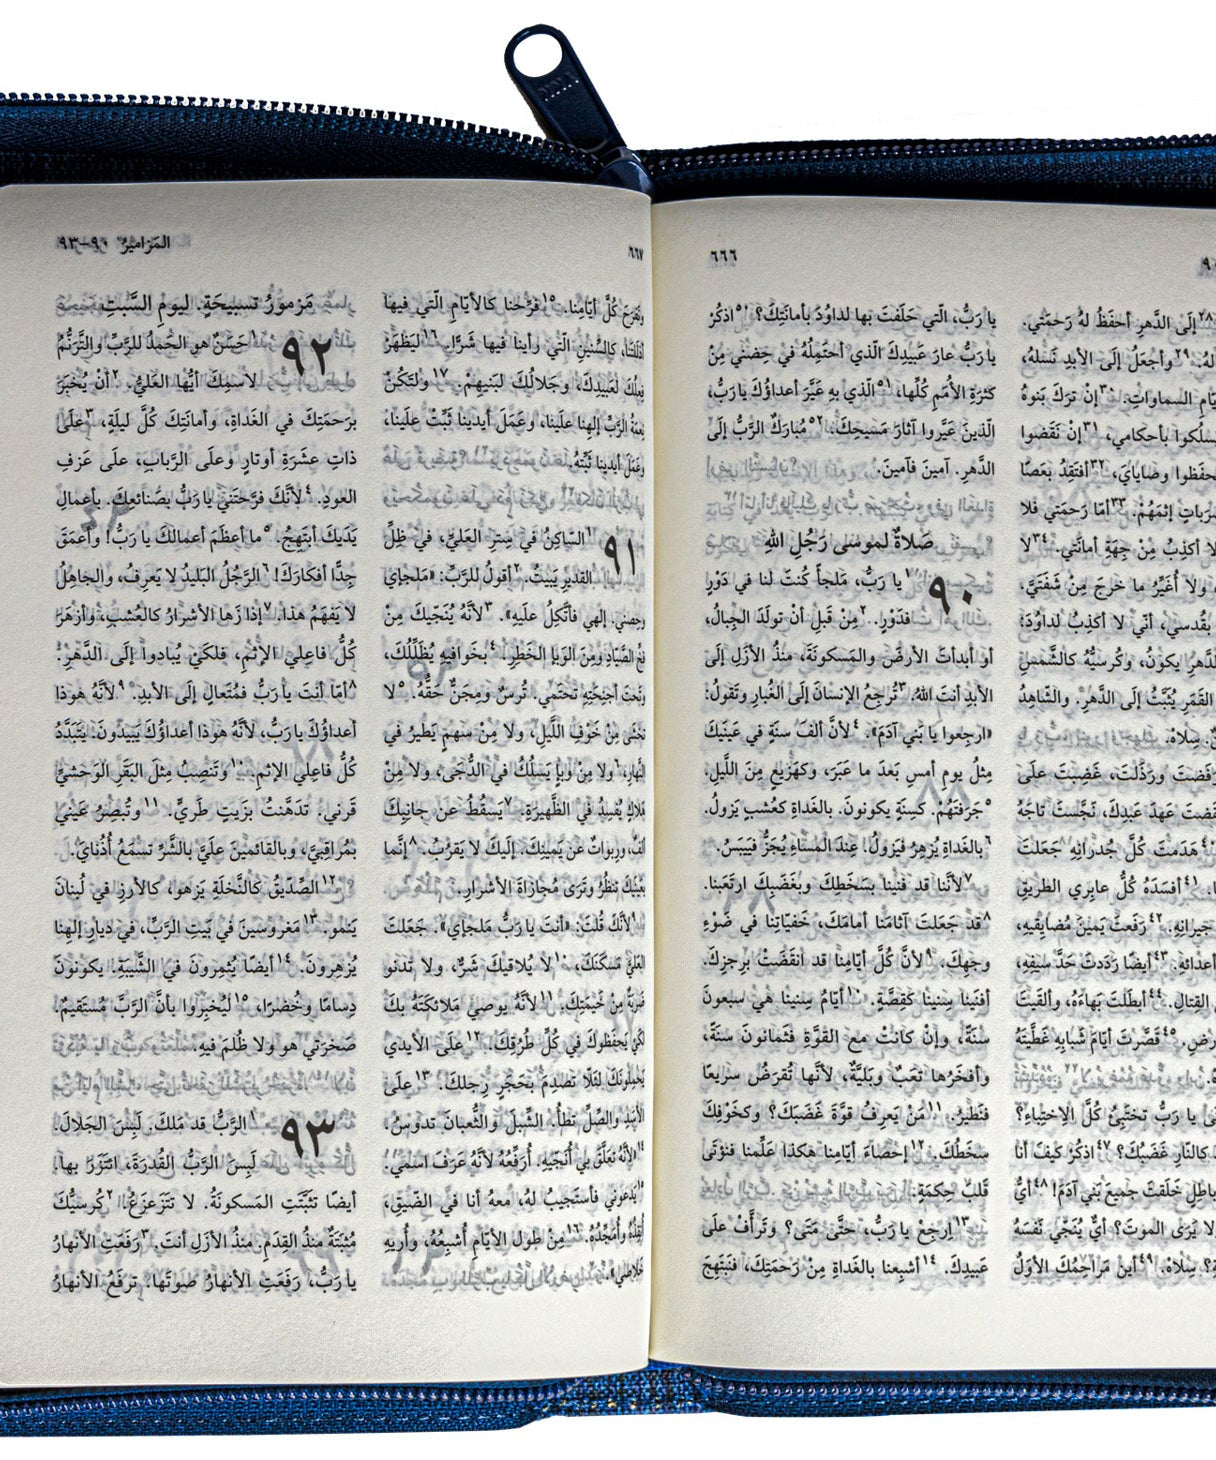 ٦٦٦
٢٨إلَى الدَّهرِ أحفَظُ لهُ رَحمَتي.
لهُ. ٢٩وأجعَلُ إلَى الأبدِ نَسلهُ،
السماواتِ. ٣٠إنْ ترَكَ بَنوهُ
بأحكامي، ٣١إنْ نَقَضوا
وصايايَ، ٣٢أفتَقِدُ بعَصًا
إثمَهُمْ. ٣٣أمّا رَحمَتي فلا
لا أكذِبُ مِنْ جِهَةِ أمانَتي. ٣٤لا
ولا أُغَيِّرُ ما خرجَ مِنْ شَفَتَيَّ.
بقُدسي، أنّي لا أكذِبُ لداوُدَ:
الدَّهرِ يكونُ، وكُرسيُّهُ كالشَّمسِ
القَمَرِ يُثَبَّتُ إلَى الدَّهرِ. والشّاهِدُ
سِلاهْ.
رَفَضتَ ورَذَلتَ، غَضِبتَ علَى
عَهدَ عَبدِكَ، نَجَّستَ تاجَهُ
هَدَمتَ كُلَّ جُدرانِهِ. جَعَلتَ
٤١أفسَدَهُ كُلُّ عابِري الطريقِ
جيرانِهِ. ٤٢رَفَعتَ يَمينَ مُضايِقيهِ،
أعدائهِ. ٤٣أيضًا رَدَدتَ حَدَّ سيفِهِ،
القِتالِ. ٤٤أبطَلتَ بَهاءَهُ، وألقَيتَ
٤٥قَصَّرتَ أيّامَ شَبابِهِ غَطَّيتَهُ
يا رَبُّ تختَبِئُ كُلَّ الِاختِباءِ؟
كالنّارِ غَضَبُكَ؟ ٤٧اذكُرْ كيفَ أنا
باطِلٍ خَلَقتَ جميعَ بَني آدَمَ! ٤٨أيُّ
لا يَرَى الموتَ؟ أيٌّ يُنَجّي نَفسَهُ
سِلاهْ. ٤٩أينَ مَراحِمُكَ الأوَلُ
يا رَبُّ، الّتي حَلَفتَ بها لداوُدَ بأمانَتِكَ؟ ٥٠اذكُرْ
يا رَبُّ عارَ عَبيدِكَ الّذي أحتَمِلُهُ في حِضني مِنْ
كثرَةِ الأُمَمِ كُلِّها، ٥١الّذي بهِ عَيَّرَ أعداؤُكَ يا رَبُّ،
الّذينَ عَيَّروا آثارَ مَسيحِكَ. ٥٢مُبارَكٌ الرَّبُّ إلَى
الدَّهرِ. آمينَ فآمينَ.
صَلاةٌ لموسَى رَجُلِ اللهِ
٩٠ ١يا رَبُّ، مَلجأً كُنتَ لنا في دَوْرٍ
فدَوْرٍ. ٢مِنْ قَبلِ أنْ تولَدَ الجِبالُ،
أو أبدأتَ الأرضَ والمَسكونَةَ، منذُ الأزَلِ إلَى
الأبدِ أنتَ اللهُ. ٣تُرجِعُ الإنسانَ إلَى الغُبارِ وتَقولُ:
«ارجِعوا يا بَني آدَمَ». ٤لأنَّ ألفَ سنَةٍ في عَينَيكَ
مِثلُ يومِ أمسِ بَعدَ ما عَبَرَ، وكهَزيعٍ مِنَ اللَّيلِ.
٥جَرَفتَهُمْ. كسِنَةٍ يكونونَ. بالغَداةِ كعُشبٍ يَزولُ.
٦بالغَداةِ يُزهِرُ فيَزولُ. عِندَ المساءِ يُجَزُّ فيَيبَسُ.
٧لأنَّنا قد فنينا بسَخَطِكَ وبغَضَبِكَ ارتَعَبنا.
٨قد جَعَلتَ آثامَنا أمامَكَ، خَفيّاتِنا في ضَوْءِ
وجهِكَ. ٩لأنَّ كُلَّ أيّامِنا قد انقَضَتْ برِجزِكَ.
أفنَينا سِنينا كقِصَّةٍ. ١٠أيّامُ سِنينا هي سبعونَ
سنَةً، وإنْ كانتْ مع القوَّةِ فثَمانونَ سنَةً،
وأفخَرُها تعَبٌ وبَليَّةٌ، لأنَّها تُقرَضُ سريعًا
فنَطيرُ. ١١مَنْ يَعرِفُ قوَّةَ غَضَبِكَ؟ وكخَوْفِكَ
سخَطُكَ. ١٢إحصاءَ أيّامِنا هكذا عَلِّمنا فنؤتَى
قَلبَ حِكمَةٍ.
١٣اِرجِعْ يا رَبُّ، حتَّى مَتَى؟ وتَرأّفْ علَى
عَبيدِكَ. ١٤أشبِعنا بالغَداةِ مِنْ رَحمَتِكَ، فنَبتَهِجَ
٦٦٧
المَزاميرُ ٩٠-٩٣
ونَفرَحَ كُلَّ أيّامِنا. ١٥فرِّحنا كالأيّامِ الّتي فيها
أذلَلتَنا، كالسِّنينِ الّتي رأينا فيها شَرًّا. ١٦ليَظهَرْ
فِعلُكَ لعَبيدِكَ، وجَلالُكَ لبَنيهِمْ. ١٧ولتَكُنْ
نِعمَةُ الرَّبِّ إلهِنا علَينا، وعَمَلَ أيدينا ثَبِّتْ علَينا،
وعَمَلَ أيدينا ثَبِّتهُ.
٩١ ١السّاكِنُ في سِترِ العَليِّ، في ظِلِّ
القديرِ يَبيتُ. ٢أقولُ للرَّبِّ: «مَلجإي
وحِصني. إلهي فأتَّكِلُ علَيهِ». ٣لأنَّهُ يُنَجّيكَ مِنْ
فخِّ الصَّيّادِ ومِنَ الوَبإ الخَطِرِ. ٤بخَوافيهِ يُظَلِّلُكَ،
وتحتَ أجنِحَتِهِ تحتَمي. تُرسٌ ومِجَنٌّ حَقُّهُ. ٥لا
تخشَى مِنْ خَوْفِ اللَّيلِ، ولا مِنْ سهمٍ يَطيرُ في
النَّهارِ، ٦ولا مِنْ وبإٍ يَسلُكُ في الدُّجَى، ولا مِنْ
هَلاكٍ يُفسِدُ في الظَّهيرَةِ. ٧يَسقُطُ عن جانِبِكَ
ألفٌ، ورِبواتٌ عن يَمينِكَ. إلَيكَ لا يَقرُبُ. ٨إنَّما
بعَينَيكَ تنظُرُ وتَرَى مُجازاةَ الأشرارِ.
٩لأنَّكَ قُلتَ: «أنتَ يا رَبُّ مَلجإي». جَعَلتَ
العَليَّ مَسكَنَكَ، ١٠لا يُلاقيكَ شَرٌّ، ولا تدنو
ضَربَةٌ مِنْ خَيمَتِكَ. ١١لأنَّهُ يوصي مَلائكَتَهُ بكَ
لكَيْ يَحفَظوكَ في كُلِّ طُرُقِكَ. ١٢علَى الأيدي
يَحمِلونَكَ لئَلّا تصدِمَ بحَجَرٍ رِجلكَ. ١٣علَى
الأسَدِ والصِّلِّ تطأُ. الشِّبلَ والثُّعبانَ تدوسُ.
١٤لأنَّهُ تعَلَّقَ بي أُنَجّيهِ. أُرَفِّعُهُ لأنَّهُ عَرَفَ اسمي.
١٥يَدعوني فأستَجيبُ لهُ، معهُ أنا في الضّيقِ،
أُنقِذُهُ وأُمَجِّدُهُ. ١٦مِنْ طول الأيّامِ أُشبِعُهُ، وأُريهِ
خَلاصي».
مَزمورُ تسبيحَةٍ. ليومِ السَّبتِ
٩٢ ١حَسَنٌ هو الحَمدُ للرَّبِّ والتَّرَنُّمُ
لاسمِكَ أيُّها العَليُّ. ٢أنْ يُخبَرَ
برَحمَتِكَ في الغَداةِ، وأمانَتِكَ كُلَّ ليلَةٍ، ٣علَى
ذاتِ عَشَرَةِ أوتارٍ وعلَى الرَّبابِ، علَى عَزفِ
العودِ. ٤لأنَّكَ فرَّحتَني يا رَبُّ بصَنائعِكَ. بأعمالِ
يَدَيكَ أبتَهِجُ. ٥ما أعظَمَ أعمالكَ يا رَبُّ! وأعمَقَ
جِدًّا أفكارَكَ! ٦الرَّجُلُ البَليدُ لا يَعرِفُ، والجاهِلُ
لا يَفهَمُ هذا. ٧إذا زَها الأشرارُ كالعُشبِ، وأزهَرَ
كُلُّ فاعِلي الإثمِ، فلكَيْ يُبادوا إلَى الدَّهرِ.
٨أمّا أنتَ يا رَبُّ فمُتَعالٍ إلَى الأبدِ. ٩لأنَّهُ هوذا
أعداؤُكَ يا رَبُّ، لأنَّهُ هوذا أعداؤُكَ يَبيدونَ. يتَبَدَّدُ
كُلُّ فاعِلي الإثمِ. ١٠وتَنصِبُ مِثلَ البَقَرِ الوَحشيِّ
قَرني. تدَهَّنتُ بزَيتٍ طَريٍّ. ١١وتُبصِرُ عَيني
بمُراقِبيَّ، وبالقائمينَ علَيَّ بالشَّرِّ تسمَعُ أُذُنايَ.
١٢الصِّدّيقُ كالنَّخلَةِ يَزهو، كالأرزِ في لُبنانَ
يَنمو. ١٣مَغروسينَ في بَيتِ الرَّبِّ، في ديارِ إلهِنا
يُزهِرونَ. ١٤أيضًا يُثمِرونَ في الشَّيبَةِ. يكونونَ
دِسامًا وخُضرًا، ١٥ليُخبِروا بأنَّ الرَّبَّ مُستَقيمٌ.
صَخرَتي هو ولا ظُلمَ فيهِ.
٩٣ ١الرَّبُّ قد مَلكَ. لَبِسَ الجَلالَ.
لَبِسَ الرَّبُّ القُدرَةَ، ائتَزَرَ بها.
أيضًا تثَبَّتَتِ المَسكونَةُ. لا تتَزَعزَعُ. ٢كُرسيُّكَ
مُثبَتَةٌ منذُ القِدَمِ. منذُ الأزَلِ أنتَ. ٣رَفَعَتِ الأنهارُ
يا رَبُّ، رَفَعَتِ الأنهارُ صوتَها. ترفَعُ الأنهارُ